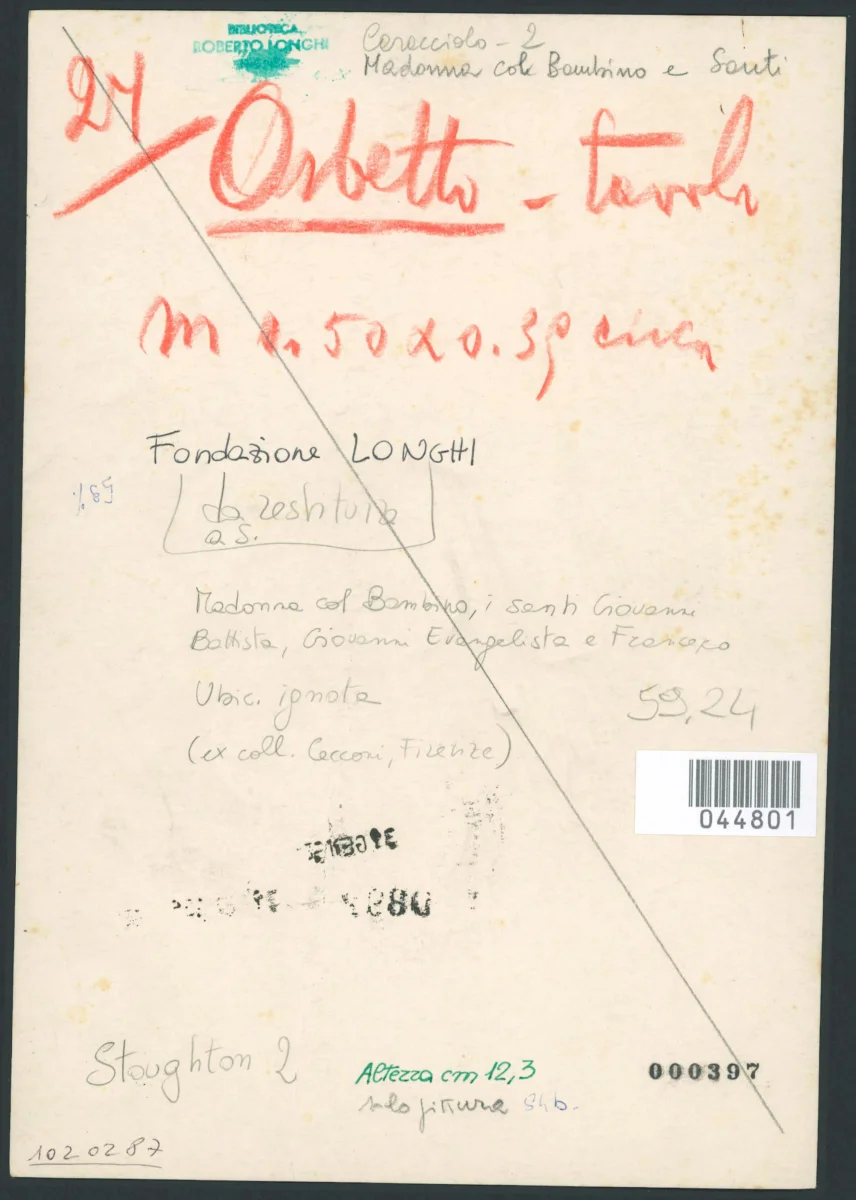 BIBLIOTECA
ROBERTO LONGHI
FIRENZE
Caracciolo - 2
Madonna col Bambino e Santi
24
Orbetto - tavola
m 1.50 x 0.39 circa
Fondazione LONGHI
da restituire
a S.
Madonna col Bambino, i santi Giovanni
Battista, Giovanni Evangelista e Francesco
Ubic. ignota
59,24
(ex coll. Cecconi, Firenze)
044801
Stoughton 2
Altezza cm 12,3
solo pittura
000397
1020287